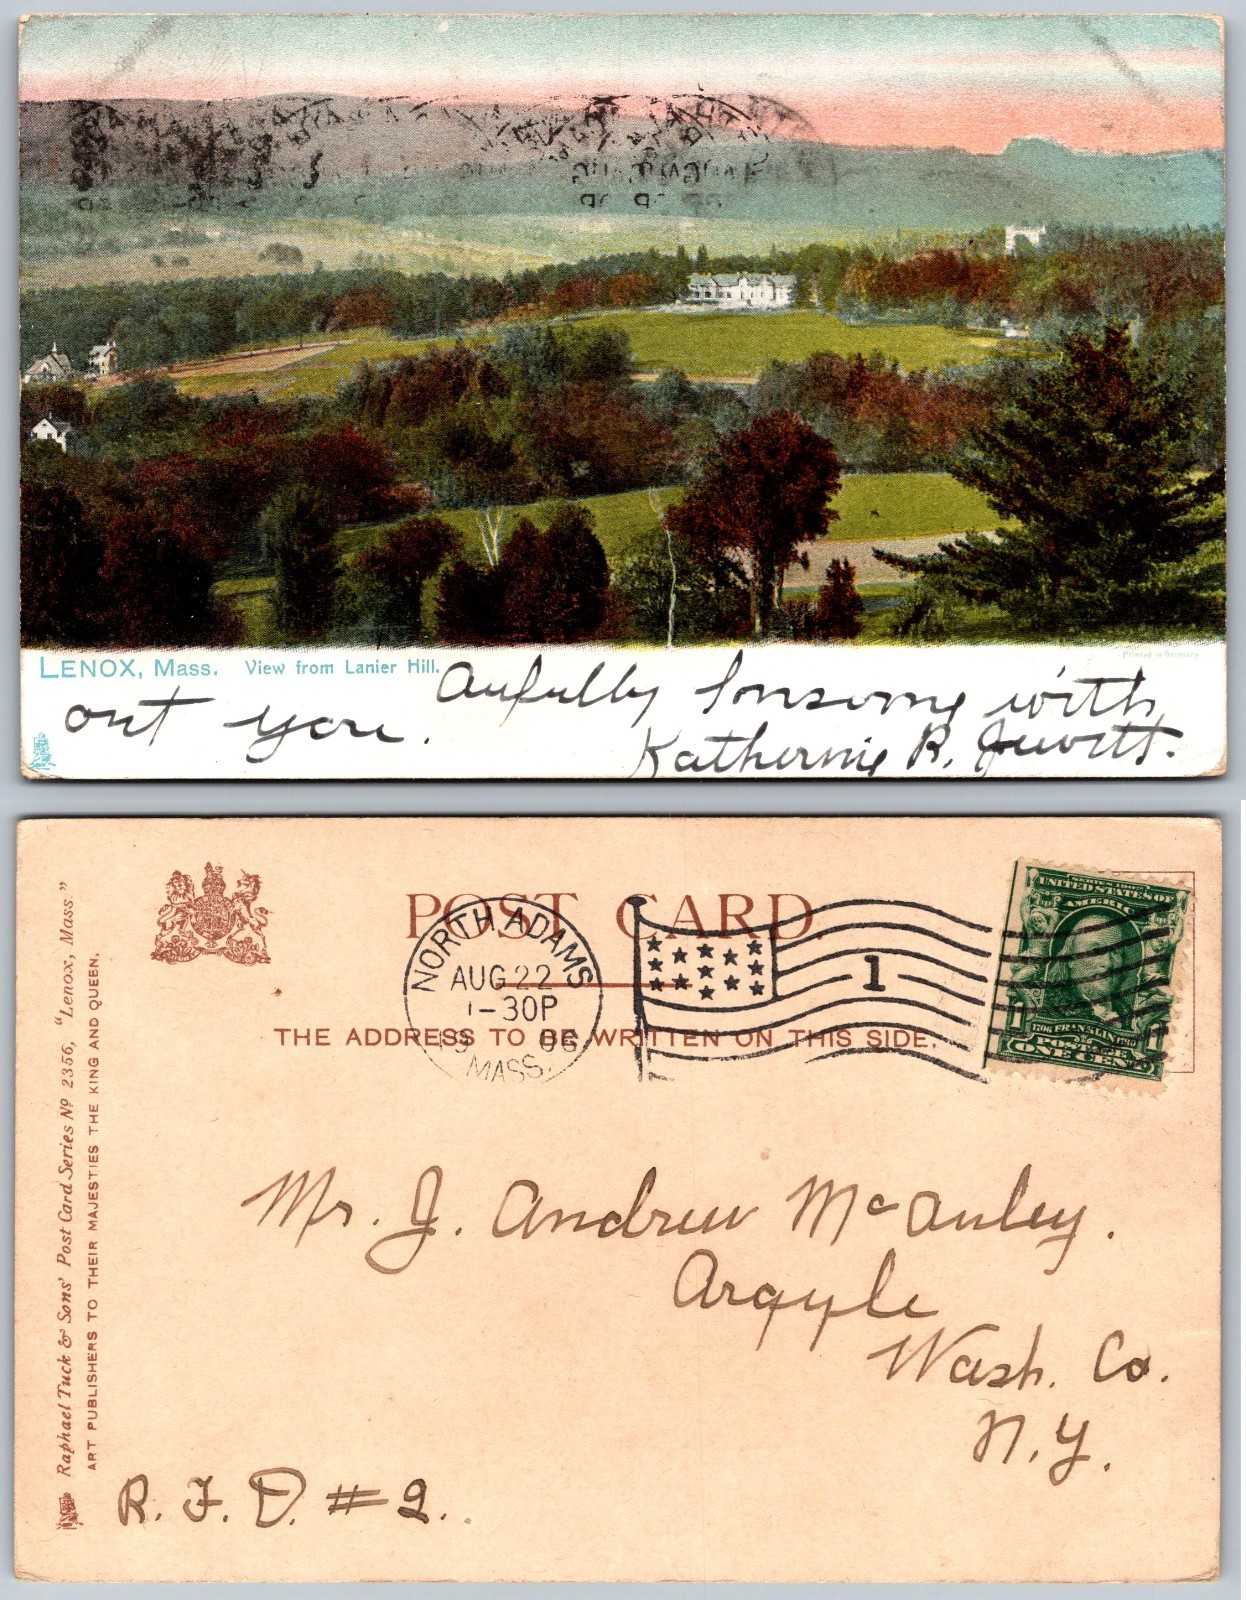 LENOX, Mass. View from Lanier Hill.
Printed in Germany.
Awfully lonsome with
out you.
Katherine R. Jewett.
Raphael Tuck & Sons' Post Card Series No 2356, "Lenox, Mass."
ART PUBLISHERS TO THEIR MAJESTIES THE KING AND QUEEN.
POST CARD.
THE ADDRESS TO BE WRITTEN ON THIS SIDE.
NORTH ADAMS
AUG 22
1-30P
MASS.
1
SERIES 1902
UNITED STATES OF
AMERICA
1706 FRANKLIN 1790
POSTAGE
ONE CENT
Mr. J. Andrew McAuley.
Argyle
Wash. Co.
N.Y.
R. F. D. #2.